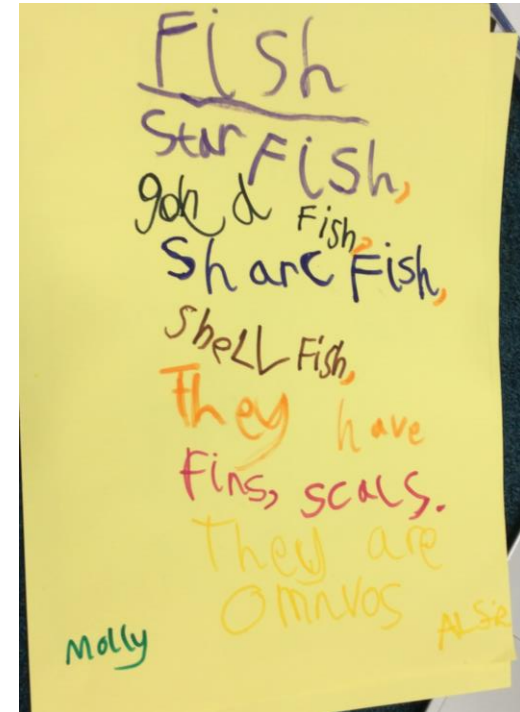 Fish
Starfish,
Fish,
Sharc Fish,
Shell Fish,
They have
Fins, scals.
They are
omnvos
Molly